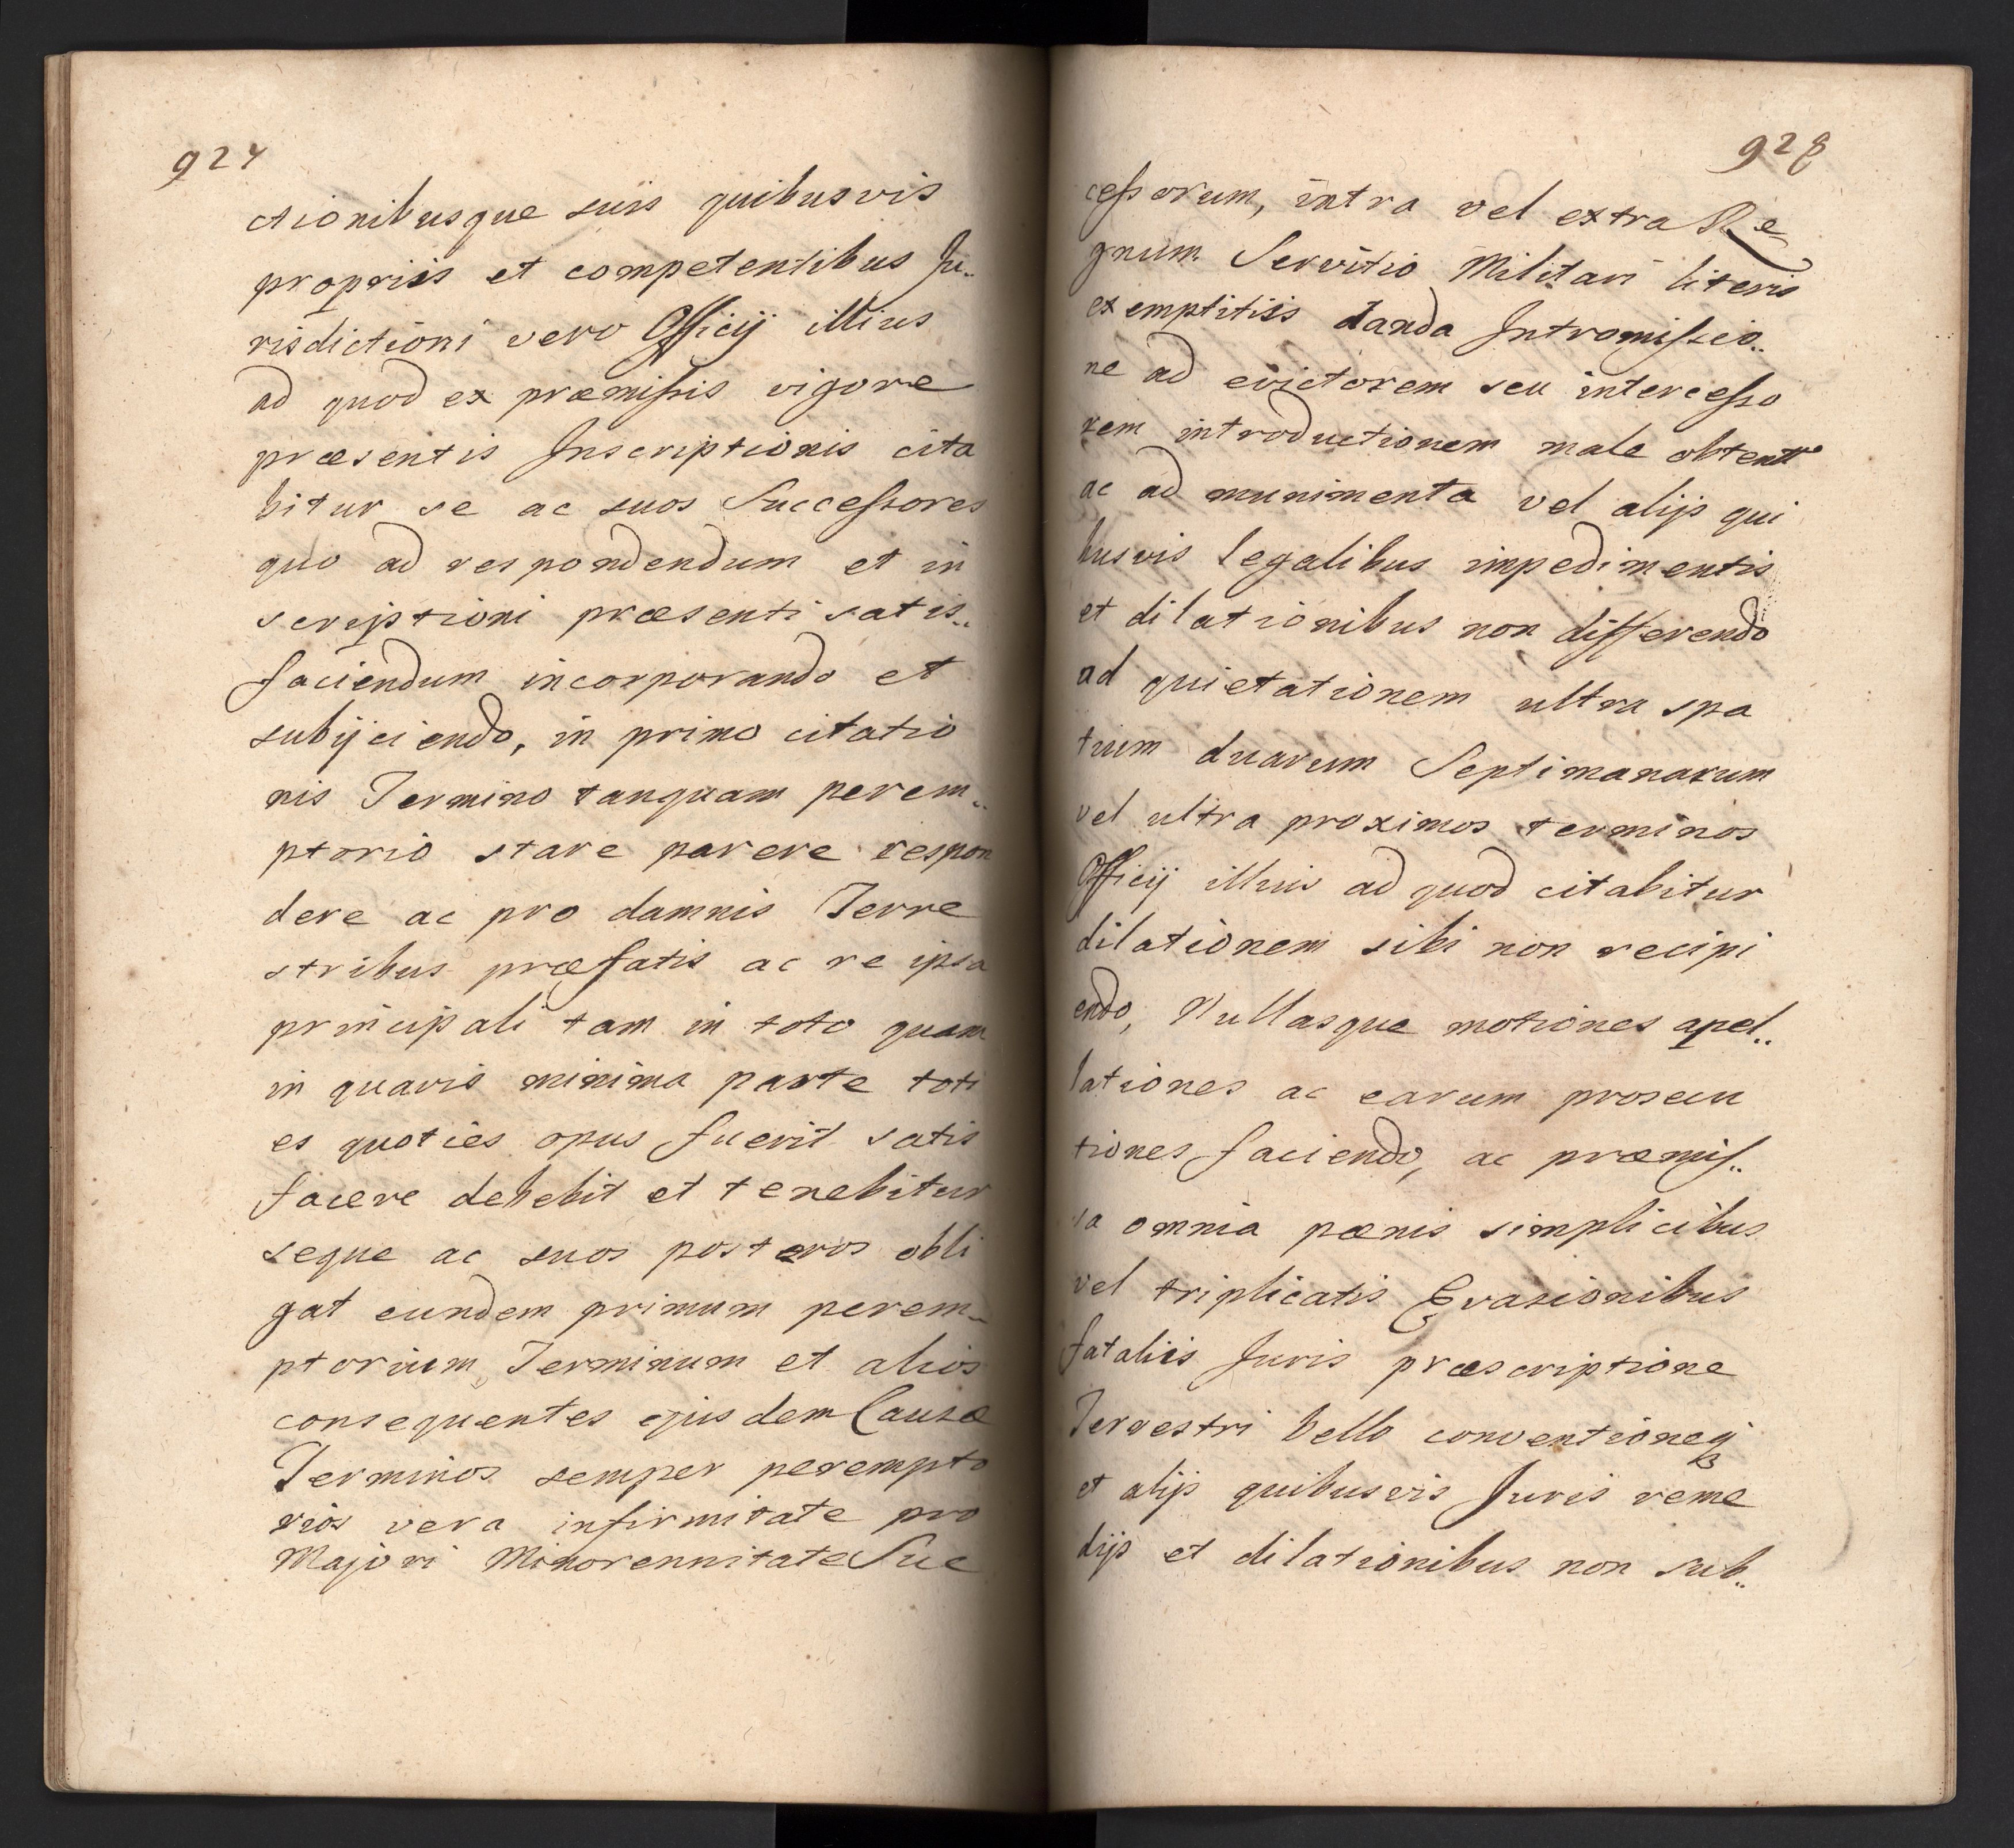 927
ctionibusque suis quibusvis
propriis et competentibus Ju..
risdictioni vero Officij illius
ad quod ex præmissis vigore
præsentis Inscriptionis cita
bitur se ac suos Successores
quo ad respondendum et in
scriptioni præsenti satis..
faciendum incorporando et
subijciendo, in primo citatio
nis Termino tanquam perem..
ptorio stare parere respon
dere ac pro damnis Terre
stribus præfatis ac re ipsa
principali tam in toto quam
in quavis minima parte toti
es quoties opus fuerit satis
facere debebit et tenebitur
seque ac suos posteros obli
gat eundem primum perem..
ptorium Terminum et alios
consequentes ejusdem Causæ
Terminos semper perempto
rios vera infirmitate pro
Majori Minorennitate Suc
928
cessorum, intra vel extra Re
gnum Servitio Militari literis
exemptitiis danda Intromissio..
ne ad evictorem seu intercesso
rem introductionem male obtent
ac ad munimenta vel alijs qui
busvis legalibus impedimentis
et dilationibus non differendo
ad quietationem ultra spa
tium duarum Septimanarum
vel ultra proximos terminos
Officij illius ad quod citabitur
dilationem sibi non recipi
endo, Nullasque motiones apel..
lationes ac earum prosecu
tiones faciendo, ac præmis..
sa omnia pœnis simplicibus
vel triplicatis Evasionibus
fataliis Juris præscriptione
Terrestri bello conventioneq
et alijs quibusvis Juris reme
dijs et dilationibus non sub..